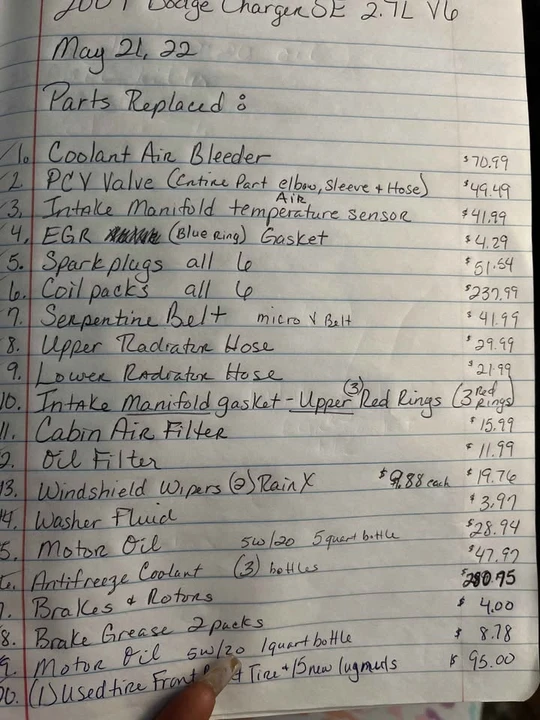 2007 Dodge Charger SE 2.7L V6
May 21, 22
Parts Replaced :
1. Coolant Air Bleeder $70.99
2. PCV Valve (Entire Part elbow, Sleeve + Hose) $49.49
3. Intake Manifold Air temperature sensor $41.99
4. EGR (Blue Ring) Gasket $4.29
5. Spark plugs all 6 $51.54
6. Coil packs all 6 $237.99
7. Serpentine Belt micro V Belt $41.99
8. Upper Radiator Hose $29.99
9. Lower Radiator Hose $21.99
10. Intake Manifold gasket - Upper (3) Red Rings (3 Red Rings)
11. Cabin Air Filter $15.99
2. Oil Filter $11.99
13. Windshield Wipers (2) Rain X $9.88 each $19.76
14. Washer Fluid $3.97
5. Motor Oil 5w/20 5 quart bottle $28.94
6. Antifreeze Coolant (3) bottles $47.97
7. Brakes & Rotors $280.95
8. Brake Grease 2 packs $4.00
9. Motor Oil 5w/20 1 quart bottle $8.78
20. (1) Used tire Front Tire + 15 new lugnuts $95.00